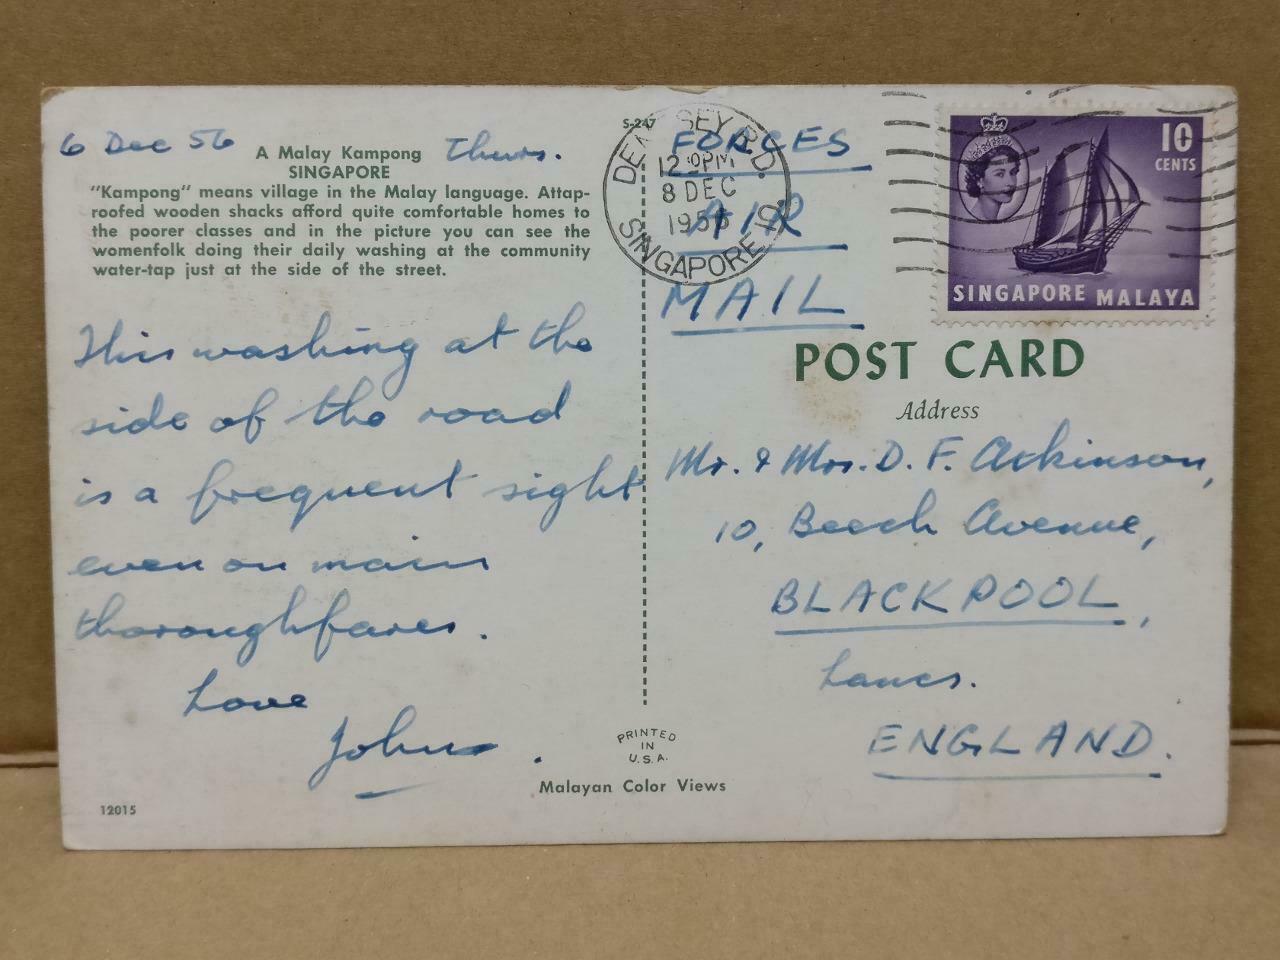 6 Dec 56 Thurs.
A Malay Kampong
SINGAPORE
"Kampong" means village in the Malay language. Attap-
roofed wooden shacks afford quite comfortable homes to
the poorer classes and in the picture you can see the
womenfolk doing their daily washing at the community
water-tap just at the side of the street.
This washing at the
side of the road
is a frequent sight
even on main
thoroughfares.
Love
John.
12015
S-247
PRINTED
IN
U.S.A.
Malayan Color Views
FORCES
AIR
MAIL
DEMPSEY RD.
8 DEC
1956
SINGAPORE 10.
10
CENTS
SINGAPORE MALAYA
POST CARD
Address
Mr. & Mrs. D. F. Atkinson,
10, Beech Avenue,
BLACKPOOL,
Lancs.
ENGLAND.